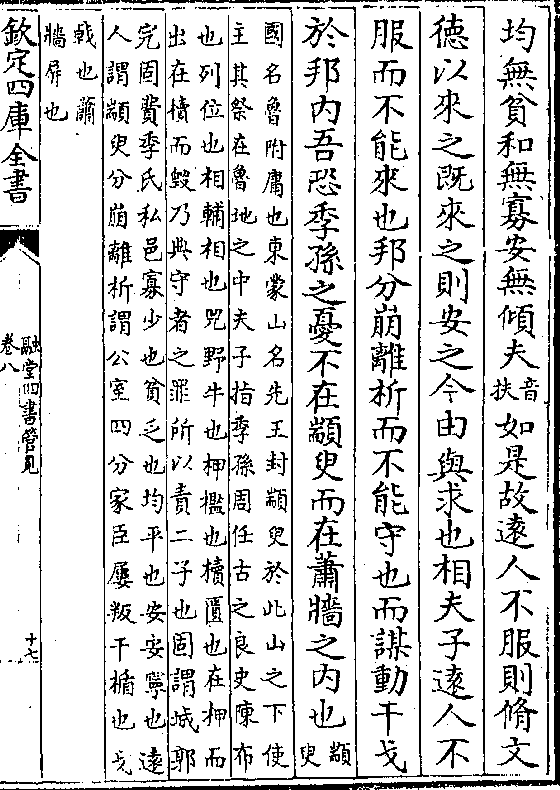 均無貧和無寡安無傾夫音扶如是故逺人不服則脩文
德以來之既來之則安之今由與求也相夫子逺人不
服而不能來也邦分崩離析而不能守也而謀動干戈
於邦内吾恐季孫之憂不在顓臾而在蕭牆之内也顓臾
國名魯附庸也東蒙山名先王封顓臾於此山之下使
主其祭在魯地之中夫子指季孫周任古之良史陳布
也列位也相輔相也兕野牛也柙檻也櫝匵也在柙而
出在櫝而毀乃典守者之罪所以責二子也固謂城郭
完固費季氏私邑寡少也貧乏也均平也安安寧也逺
人謂顓臾分崩離析謂公室四分家臣屢叛干楯也戈
戟也蕭
牆屏也
欽定四庫全書
融堂四書管見
卷八
十七